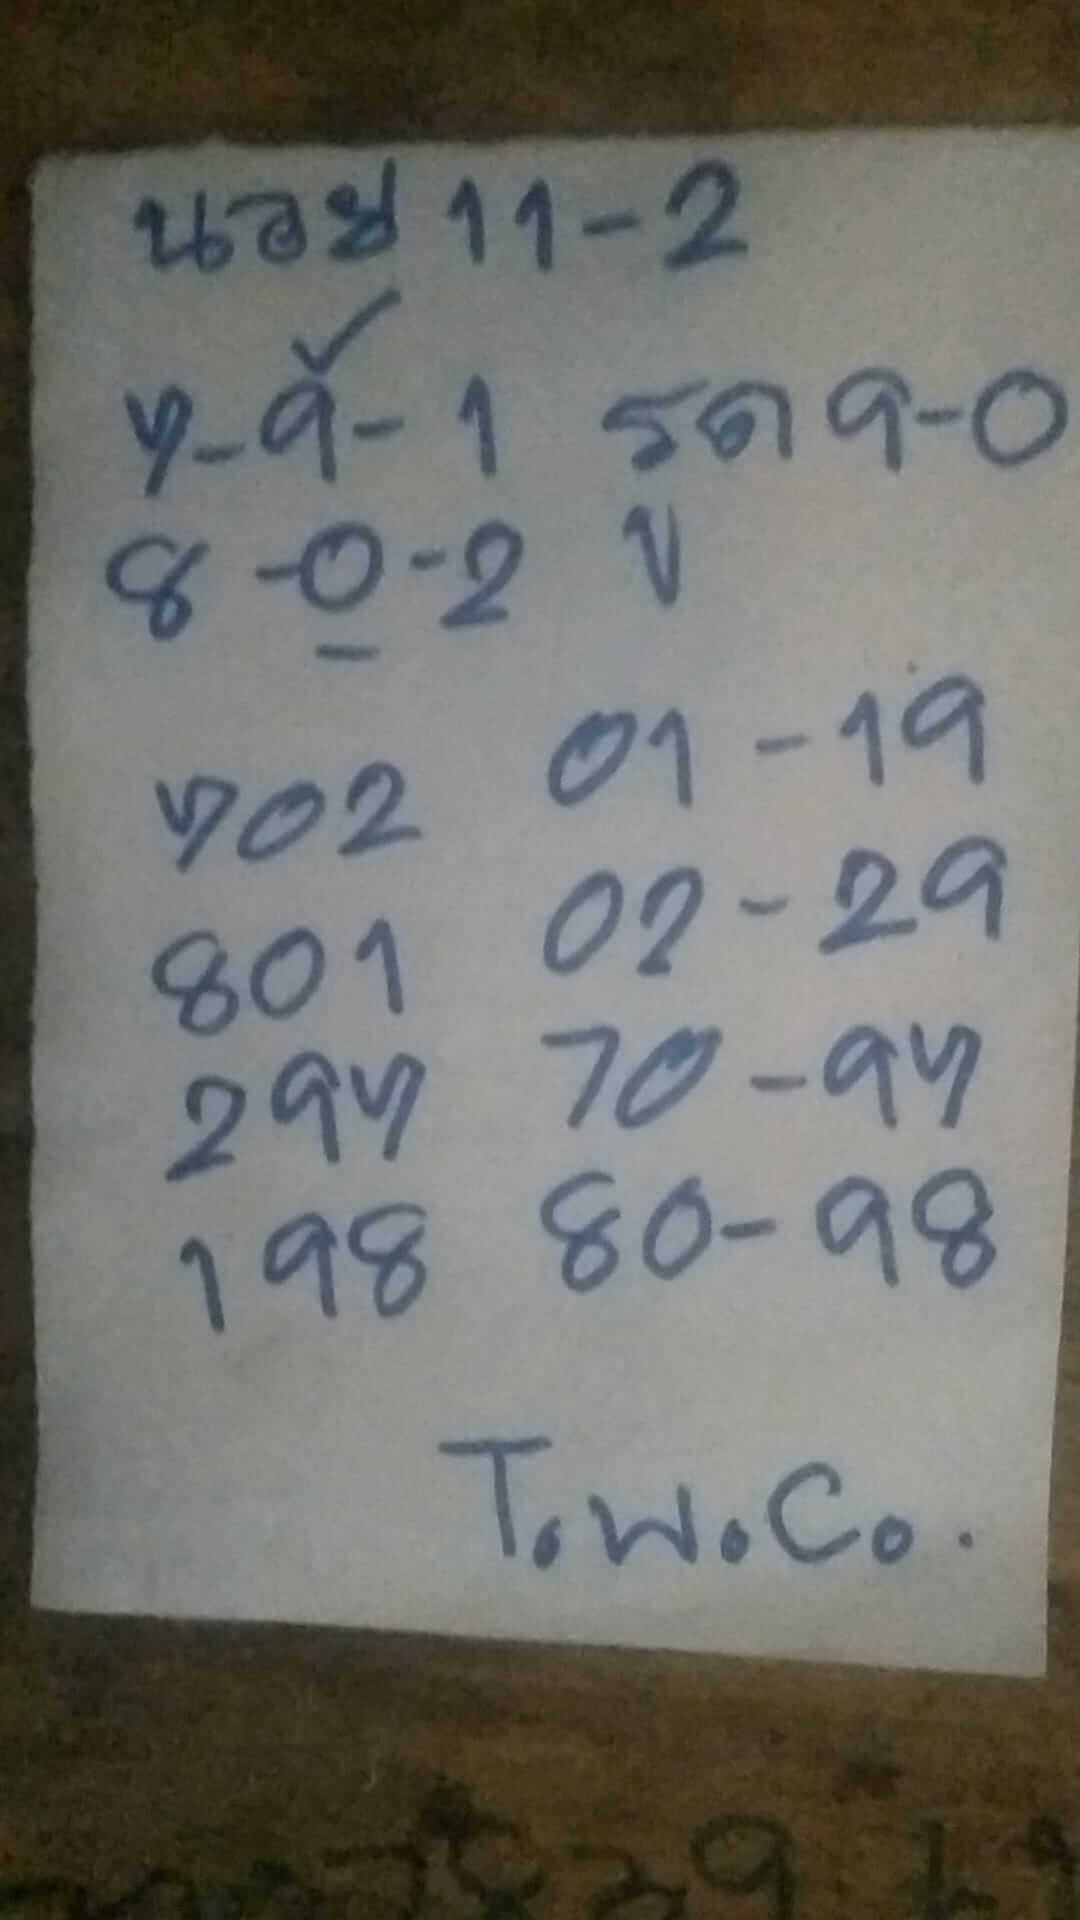 นอย 11-2
7-9-1 รูด 9-0
8-0-2 ปู
702 01-19
801 02-29
297 70-97
198 80-98
T.พ.C.